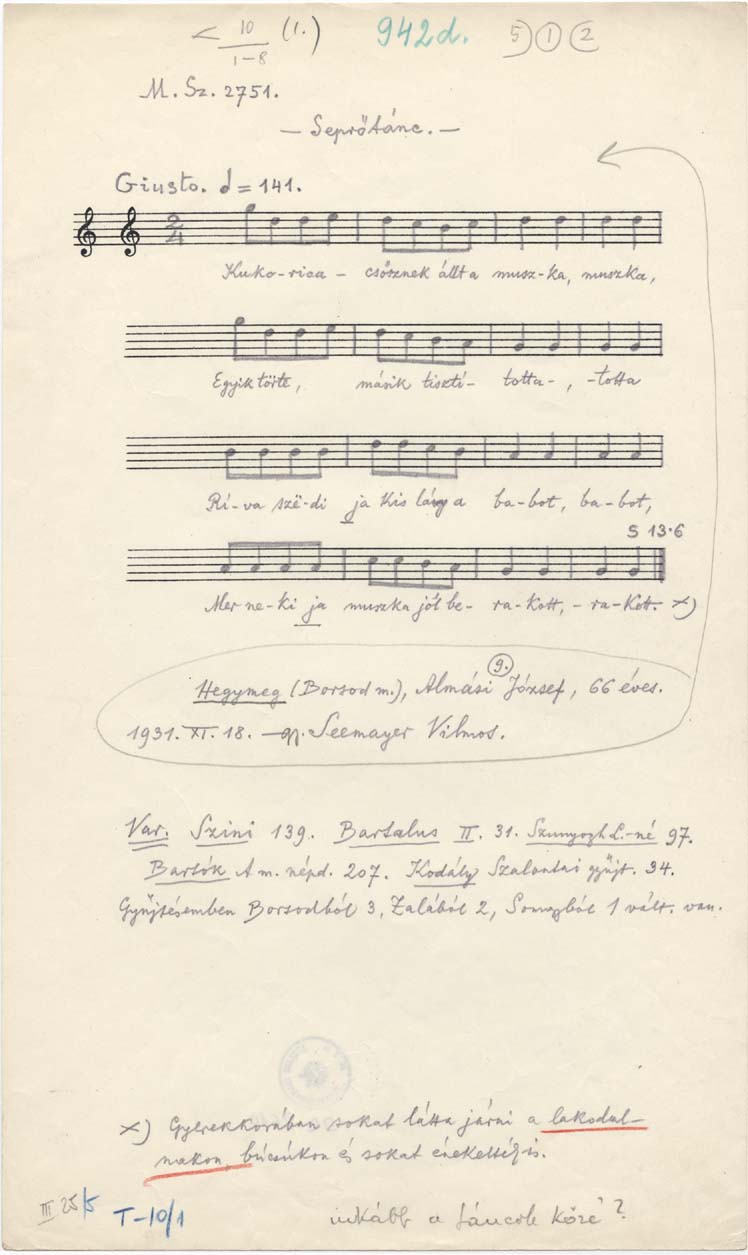 < 10/1-8 (1.) 942d. 5) 1 2
M. Sz. 2751.
— Seprőtánc. —
Giusto. = 141.
2/4
Kuko-rica - csősznek állt a musz-ka, muszka,
Egyik törte, másik tisztí- totta-, -totta
Rí-va szë-di ja kis lány a ba-bot, ba-bot,
S 13·6
Mer ne-ki ja muszka jól be- ra-kott, - ra-kott. x)
Hegymeg (Borsod m.), Almási József, 66 éves.
9.
1931. XI. 18. — gy. Seemayer Vilmos.
Var. Szini 139. Bartalus II. 31. Szunyogh L.-né 97.
Bartók A m. népd. 207. Kodály Szalontai gyűjt. 34.
Gyűjtésemben Borsodból 3, Zalából 2, Somogyból 1 vált. van.
x) Gyerekkorában sokat látta járni a lakodal-
makon, búcsúkon és sokat énekelték is.
III 25/5 T-10/1 inkább a táncok közé?